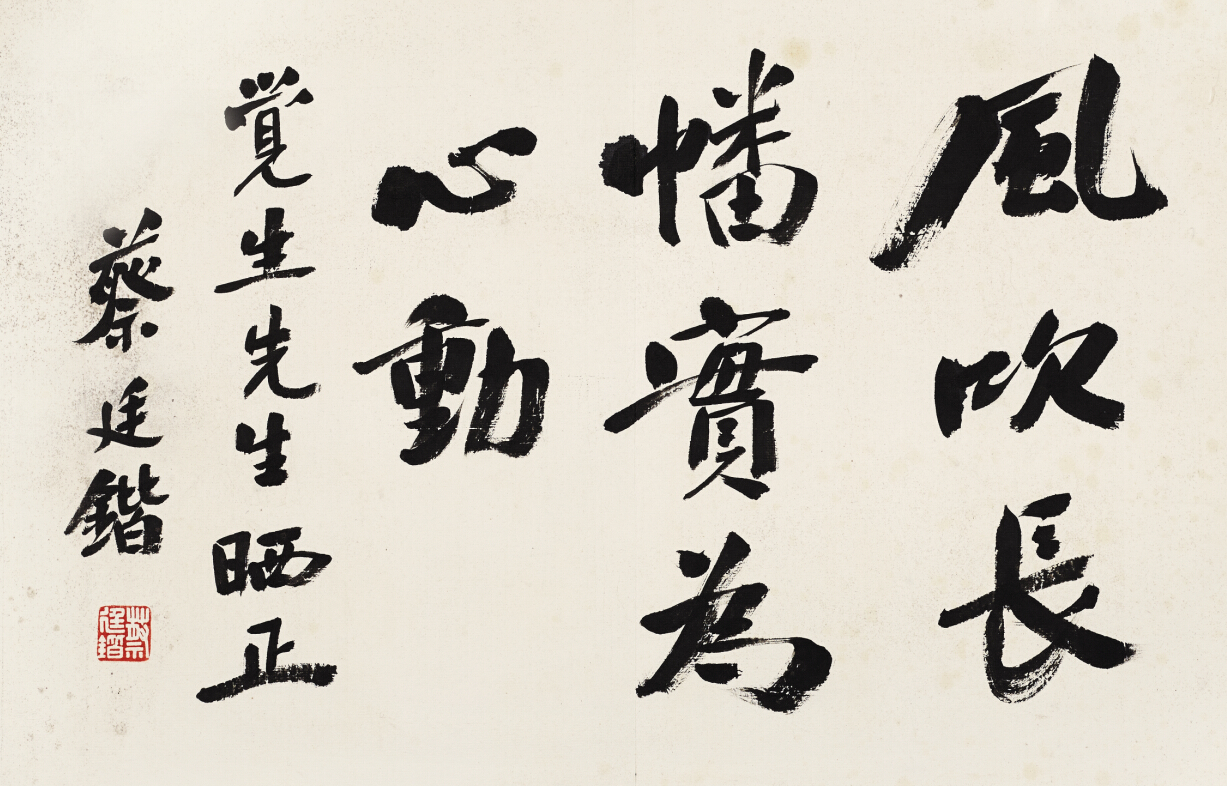 風吹長
幡實為
心動
覚生先生晒正
蔡廷鍇
蔡廷鍇